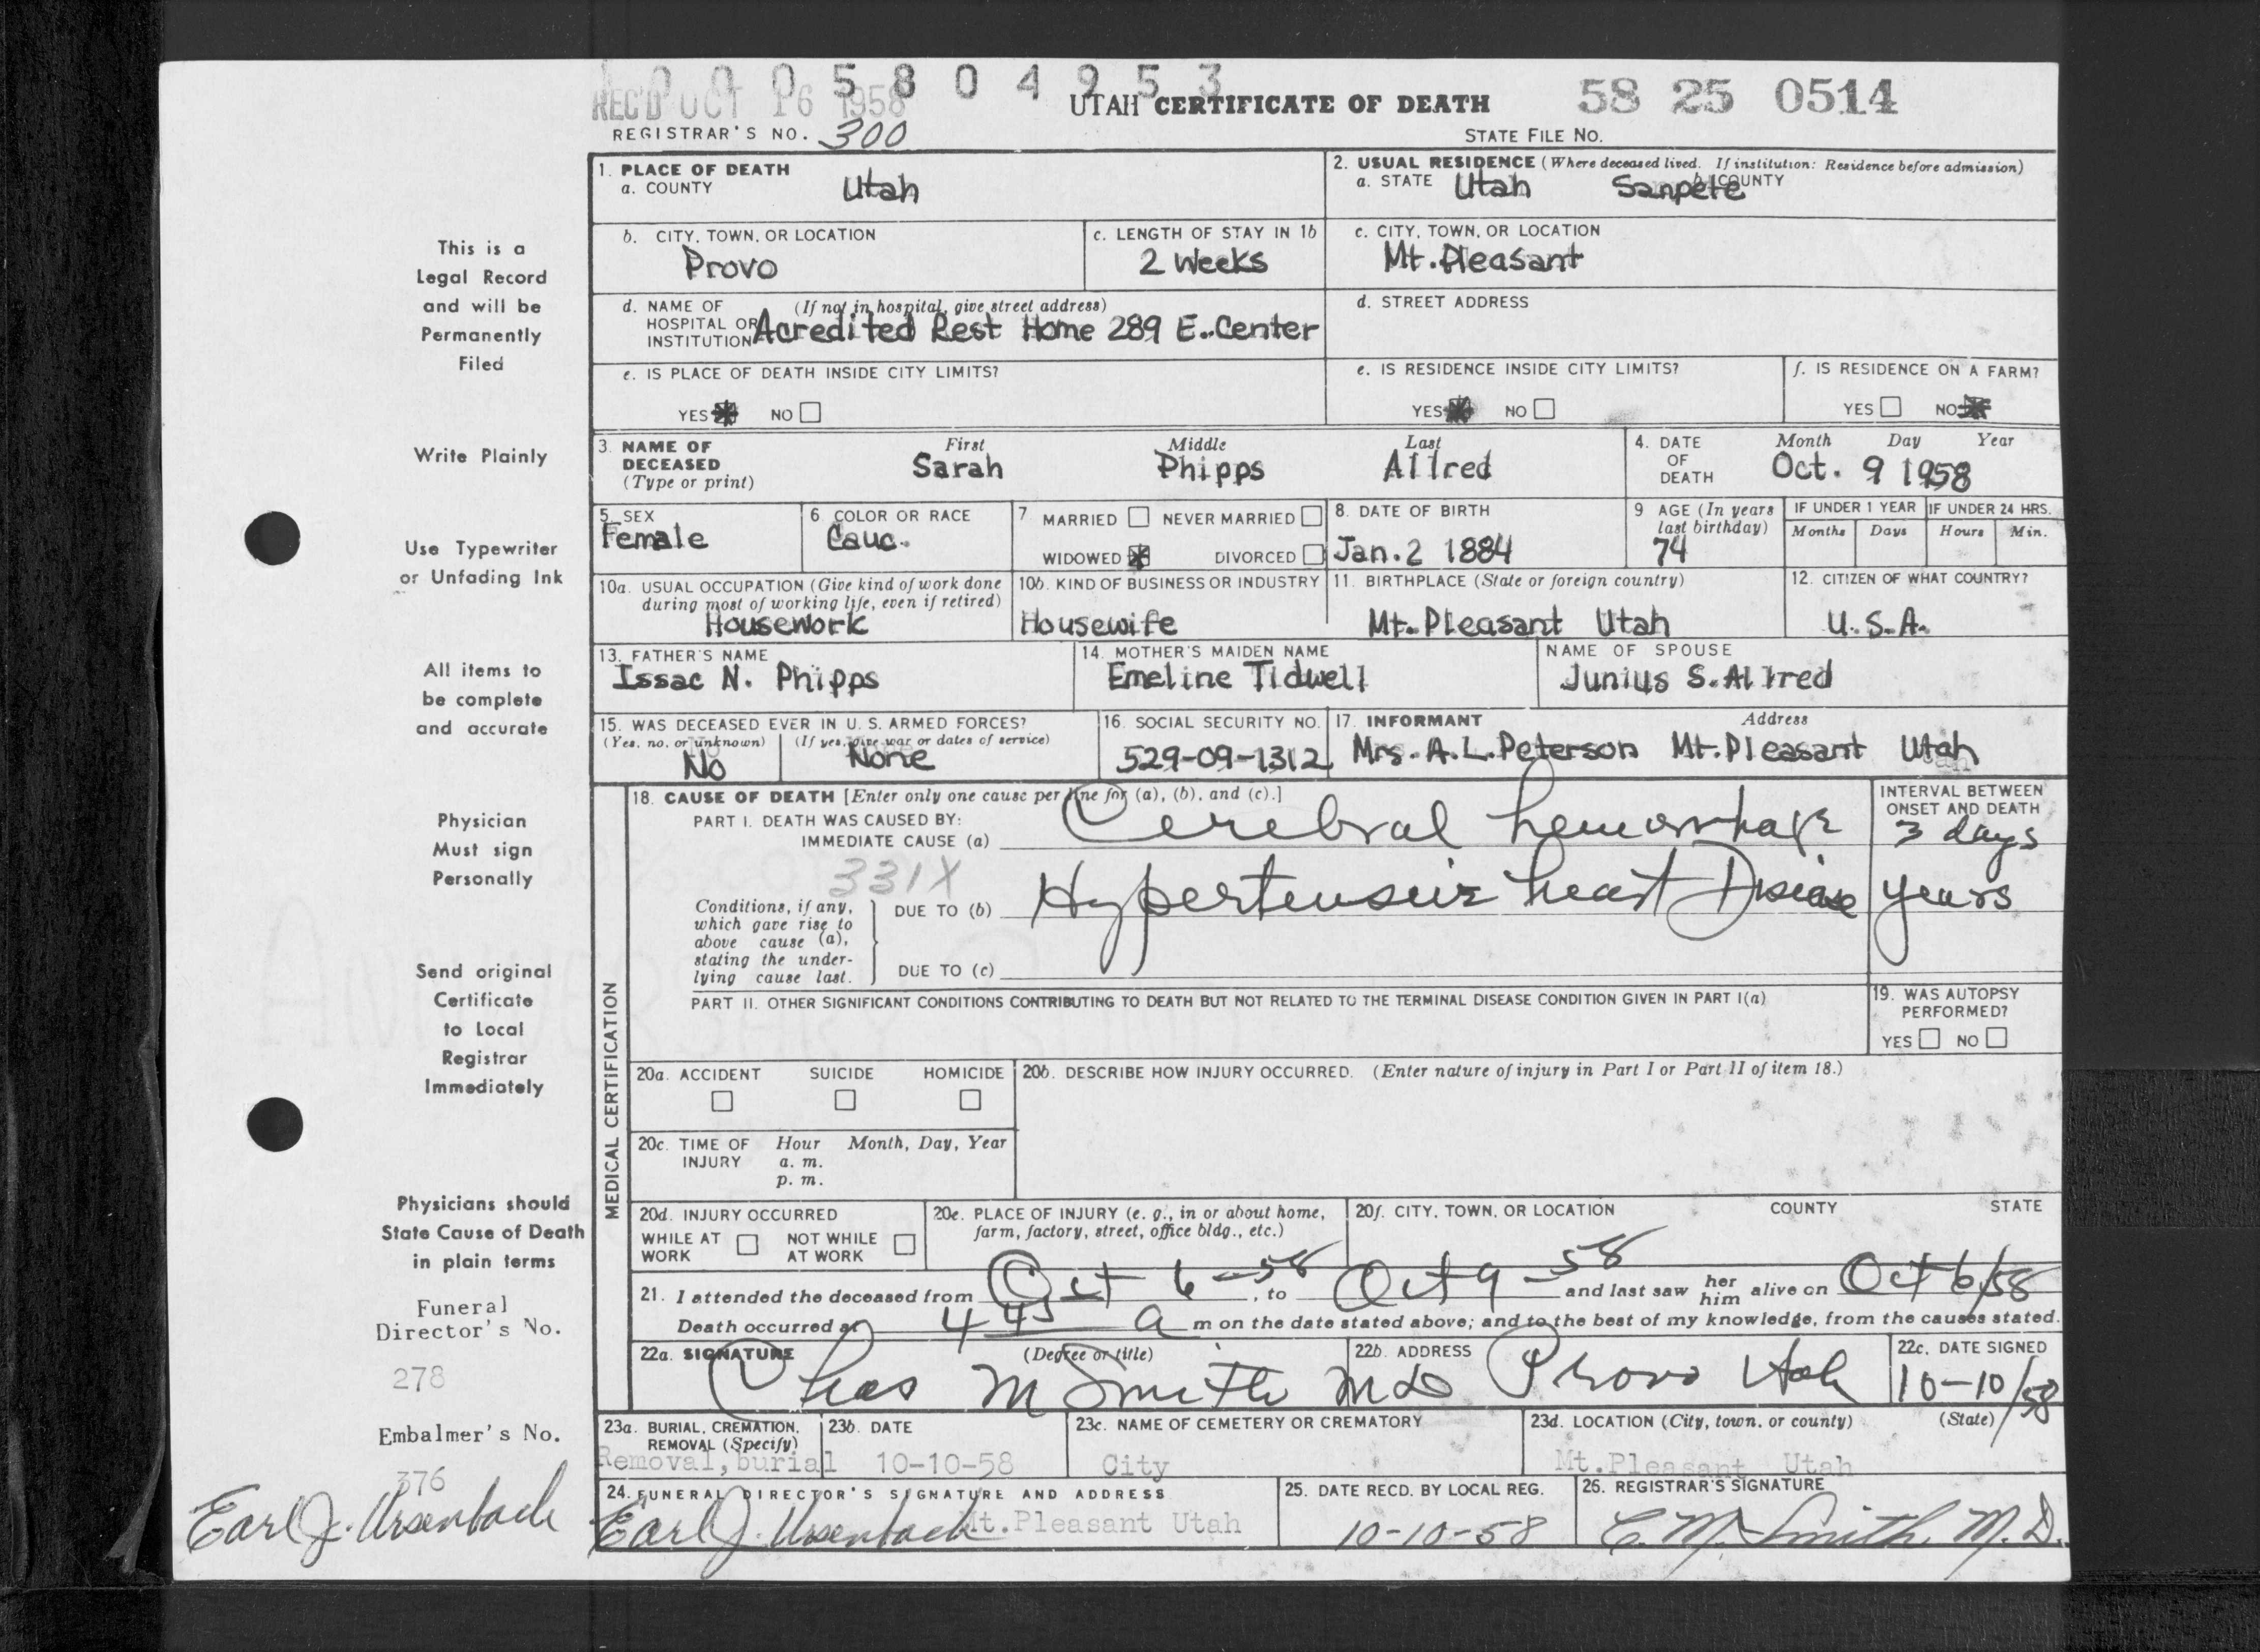 1 0 0 0 5 8 0 4 9 5 3
REC'D OCT 16 1958
UTAH CERTIFICATE OF DEATH
58 25 0514
REGISTRAR'S NO. 300
STATE FILE NO.
1. PLACE OF DEATH
a. COUNTY Utah
2. USUAL RESIDENCE (Where deceased lived. If institution: Residence before admission)
a. STATE Utah b. COUNTY Sanpete
b. CITY, TOWN, OR LOCATION
Provo
c. LENGTH OF STAY IN 1b
2 Weeks
c. CITY, TOWN, OR LOCATION
Mt. Pleasant
d. NAME OF HOSPITAL OR INSTITUTION (If not in hospital, give street address)
Acredited Rest Home 289 E. Center
d. STREET ADDRESS
e. IS PLACE OF DEATH INSIDE CITY LIMITS?
YES NO
e. IS RESIDENCE INSIDE CITY LIMITS?
YES NO
f. IS RESIDENCE ON A FARM?
YES NO
3. NAME OF DECEASED (Type or print)
First Middle Last
Sarah Phipps Allred
4. DATE OF DEATH
Month Day Year
Oct. 9 1958
5. SEX
Female
6. COLOR OR RACE
Cauc.
7. MARRIED NEVER MARRIED
WIDOWED DIVORCED
8. DATE OF BIRTH
Jan. 2 1884
9 AGE (In years last birthday)
74
IF UNDER 1 YEAR
Months Days
IF UNDER 24 HRS.
Hours Min.
10a. USUAL OCCUPATION (Give kind of work done during most of working life, even if retired)
Housework
10b. KIND OF BUSINESS OR INDUSTRY
Housewife
11. BIRTHPLACE (State or foreign country)
Mt. Pleasant Utah
12. CITIZEN OF WHAT COUNTRY?
U.S.A.
13. FATHER'S NAME
Issac N. Phipps
14. MOTHER'S MAIDEN NAME
Emeline Tidwell
NAME OF SPOUSE
Junius S. Allred
15. WAS DECEASED EVER IN U. S. ARMED FORCES?
(Yes, no, or unknown) (If yes, give war or dates of service)
No None
16. SOCIAL SECURITY NO.
529-09-1312
17. INFORMANT Address
Mrs. A.L. Peterson Mt. Pleasant Utah
MEDICAL CERTIFICATION
18. CAUSE OF DEATH [Enter only one cause per line for (a), (b), and (c).]
PART I. DEATH WAS CAUSED BY:
IMMEDIATE CAUSE (a) Cerebral hemorrhage
INTERVAL BETWEEN ONSET AND DEATH
3 days
331X
Conditions, if any, which gave rise to above cause (a), stating the underlying cause last.
DUE TO (b) Hypertensive heart Disease
years
DUE TO (c)
PART II. OTHER SIGNIFICANT CONDITIONS CONTRIBUTING TO DEATH BUT NOT RELATED TO THE TERMINAL DISEASE CONDITION GIVEN IN PART I(a)
19. WAS AUTOPSY PERFORMED?
YES NO
20a. ACCIDENT SUICIDE HOMICIDE
20b. DESCRIBE HOW INJURY OCCURRED. (Enter nature of injury in Part I or Part II of item 18.)
20c. TIME OF INJURY Hour Month, Day, Year
a. m.
p. m.
20d. INJURY OCCURRED
WHILE AT WORK NOT WHILE AT WORK
20e. PLACE OF INJURY (e. g., in or about home, farm, factory, street, office bldg., etc.)
20f. CITY, TOWN, OR LOCATION COUNTY STATE
21. I attended the deceased from Oct 6-58, to Oct 9-58 and last saw her him alive on Oct 6/58
Death occurred at 4 45 a m on the date stated above; and to the best of my knowledge, from the causes stated.
22a. SIGNATURE (Degree or title)
Chas M Smith MD
22b. ADDRESS
Provo Utah
22c. DATE SIGNED
10-10/58
23a. BURIAL, CREMATION, REMOVAL (Specify)
Removal, burial
23b. DATE
10-10-58
23c. NAME OF CEMETERY OR CREMATORY
City
23d. LOCATION (City, town, or county) (State)
Mt. Pleasant Utah
24. FUNERAL DIRECTOR'S SIGNATURE AND ADDRESS
Earl J. Ursenbach Mt. Pleasant Utah
25. DATE RECD. BY LOCAL REG.
10-10-58
26. REGISTRAR'S SIGNATURE
C. M. Smith, M.D.
This is a
Legal Record
and will be
Permanently
Filed
Write Plainly
Use Typewriter
or Unfading Ink
All items to
be complete
and accurate
Physician
Must sign
Personally
Send original
Certificate
to Local
Registrar
Immediately
Physicians should
State Cause of Death
in plain terms
Funeral
Director's No.
278
Embalmer's No.
376
Earl J. Ursenbach